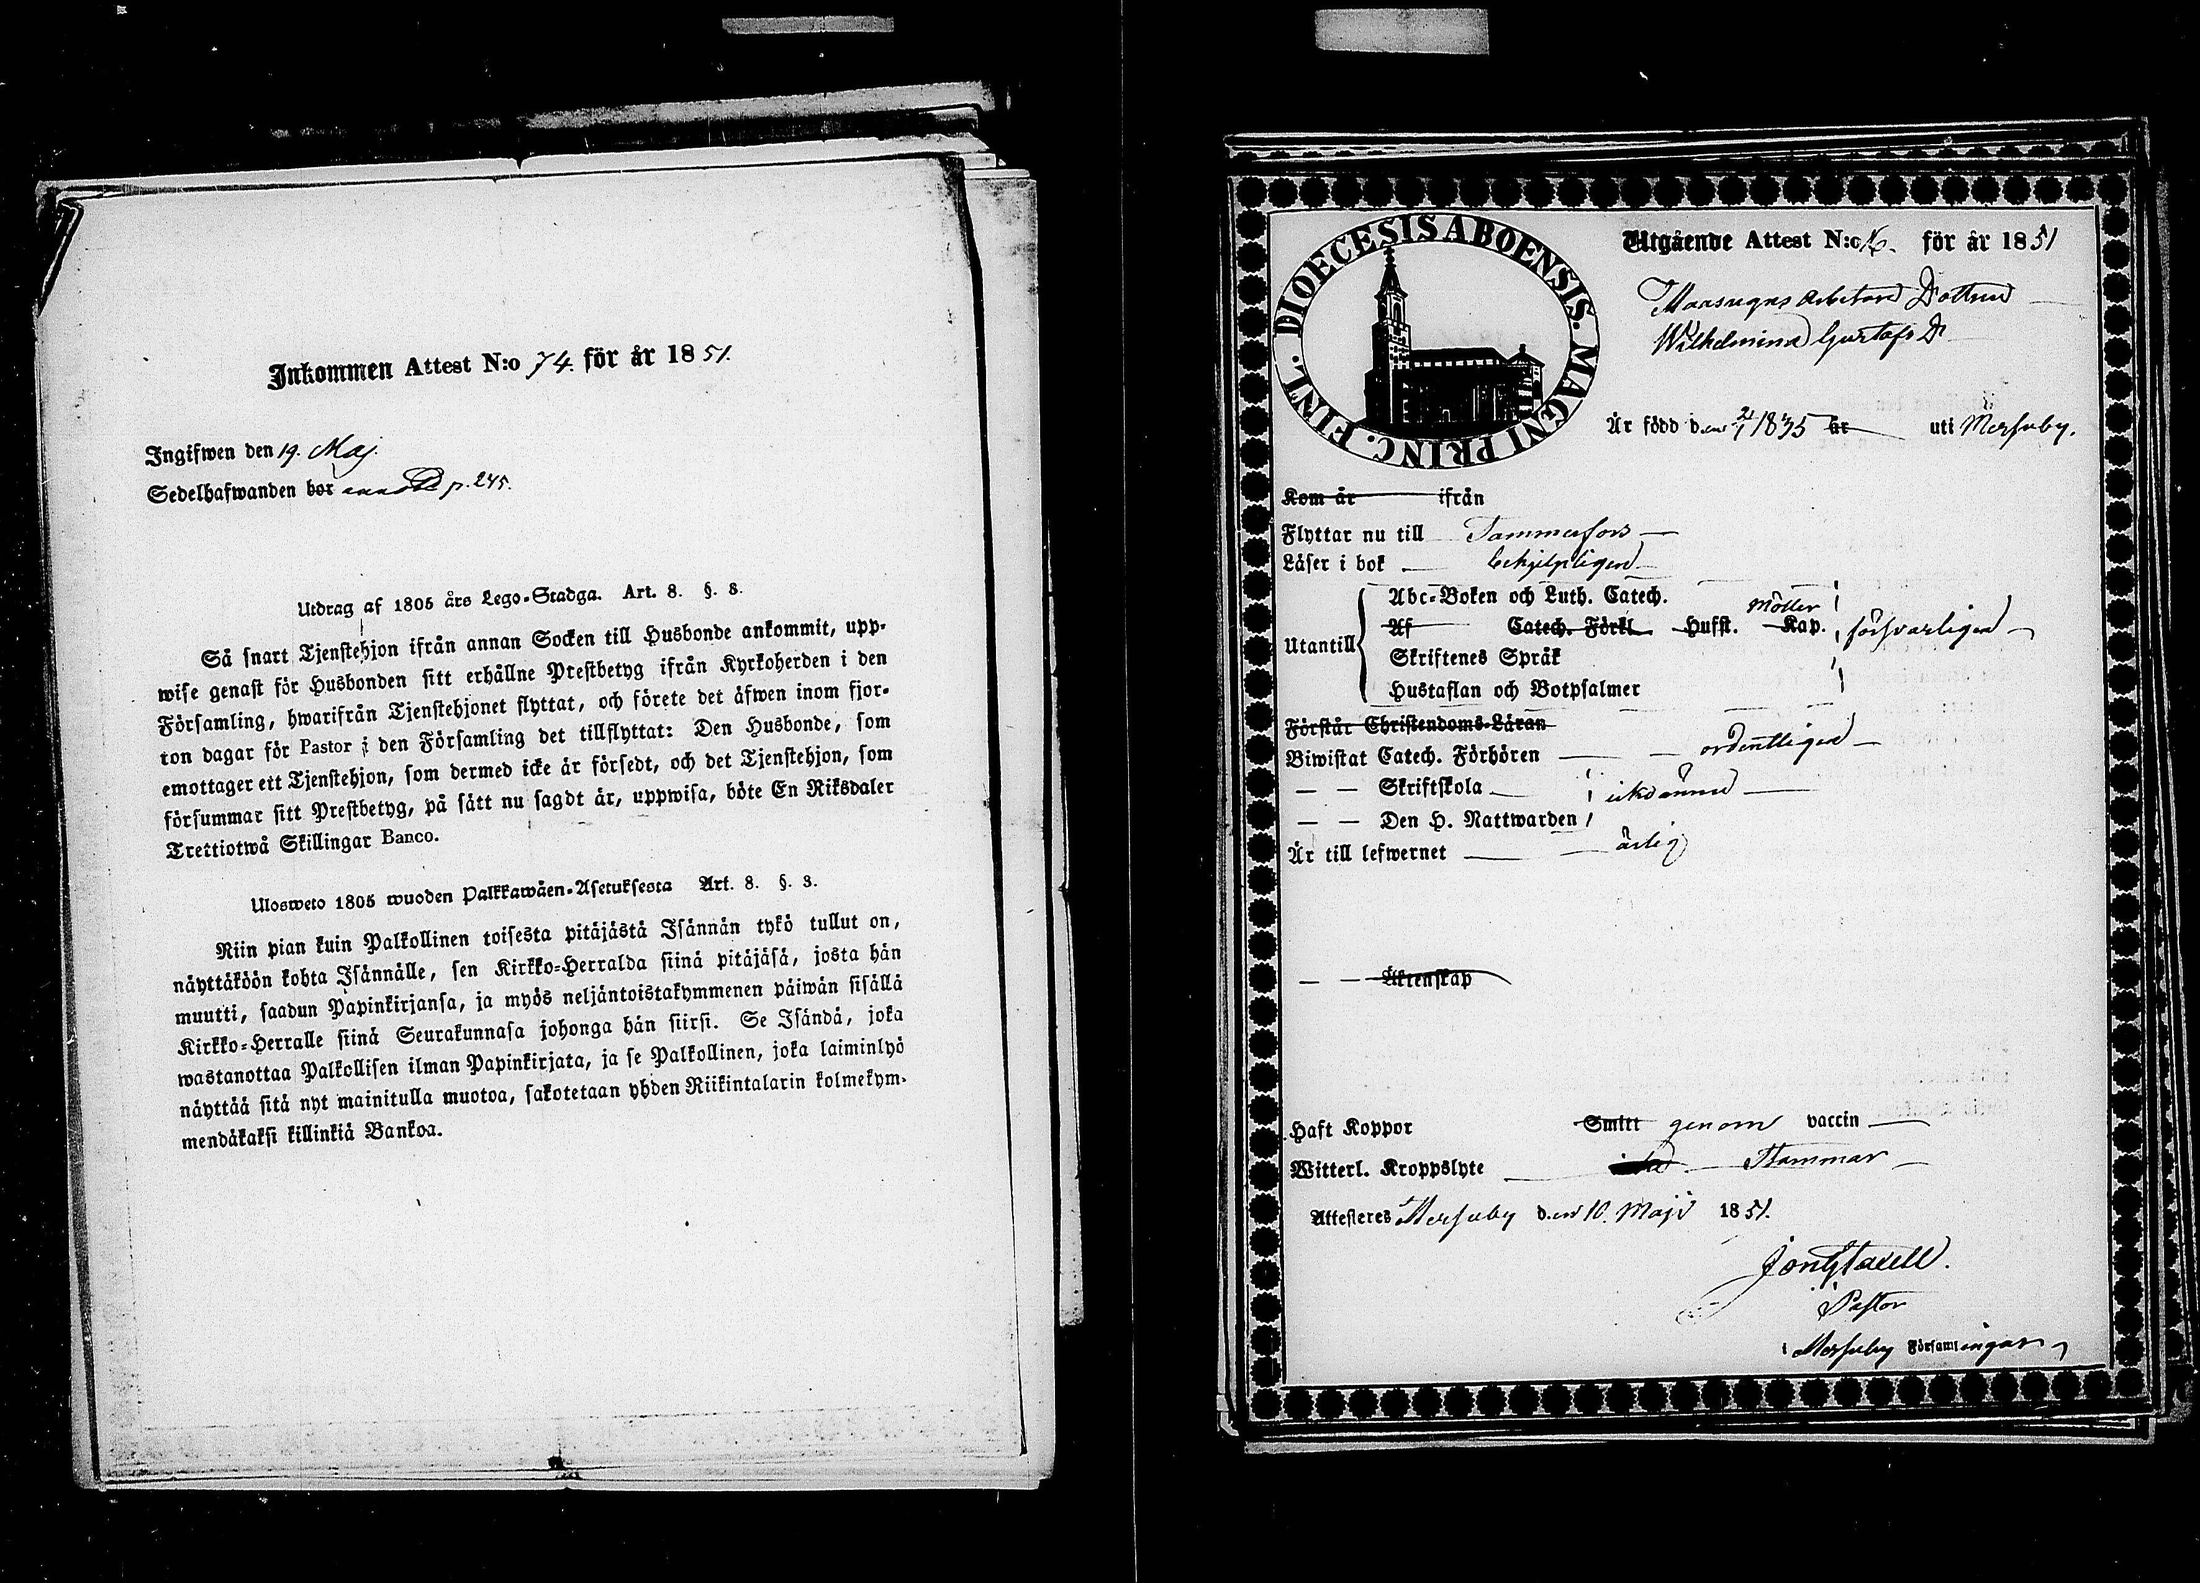 Inkommen Attest N:o 74. för år 1851.
Ingifwen den 19. Maj.
Sedelhafwanden bor p. 245.
Utdrag af 1805 års Lego-Stadga. Art. 8. §. 3.
Så snart Tjenstehjon ifrån annan Socken till Husbonde ankommit, upp-
wise genast för Husbonden sitt erhållne Prestbetyg ifrån Kyrkoherden i den
Församling, hwarifrån Tjenstehjonet flyttat, och förete det äfwen inom fjor-
ton dagar för Pastor i den Församling det tillflyttat: Den Husbonde, som
emottager ett Tjenstehjon, som dermed icke är försedt, och det Tjenstehjon, som
försummar sitt Prestbetyg, på sätt nu sagdt är, uppwisa, böte En Riksdaler
Trettiotwå Skillingar Banco.
Ulosweto 1805 wuoden Palkkawäen-Asetuksesta Art. 8. §. 3.
Niin pian kuin Palkollinen toisesta pitäjästä Isännän tykö tullut on,
näyttäköön kohta Isännälle, sen Kirkko-Herralda siinä pitäjäsä, josta hän
muutti, saadun Papinkirjansa, ja myös neljäntoistakymmenen päiwän sisällä
Kirkko-Herralle siinä Seurakunnasa johonga hän siirsi. Se Isändä, joka
wastanottaa Palkollisen ilman Papinkirjata, ja se Palkollinen, joka laiminlyö
näyttää sitä nyt mainitulla muotoa, sakotetaan yhden Riikintalarin kolmekym-
mendäkaksi killinkiä Bankoa.
DIOECESIS ABOENSIS. MAGNI PRINC. FINL.
Utgående Attest N:o 16. för år 1851
arbetare Dottren
Wilhelmina Gustafs Dr
Är född den 2/1 1835 år uti Merfuby.
Kom år ifrån
Flyttar nu till Tammerfors
Läser i bok behjelpligen
Abc-Boken och Luth. Catech.
möller
Utantill Af Catech. Förkl. Husst. Kap. försvarligen
Skriftenes Språk
Hustaflan och Botpsalmer
Förstår Christendoms-Läran
Biwistat Catech. Förhören ordentligen
— — Skriftskola
— — Den H. Nattwarden
Är till lefwernet ärlig
— — Äktenskap
Haft Koppor Smitt genom vaccin
Witterl. Kroppslyte Stammar
Attesteras Merfuby den 10. Maji 1851.
Pastor
i Merfuby Församlingar